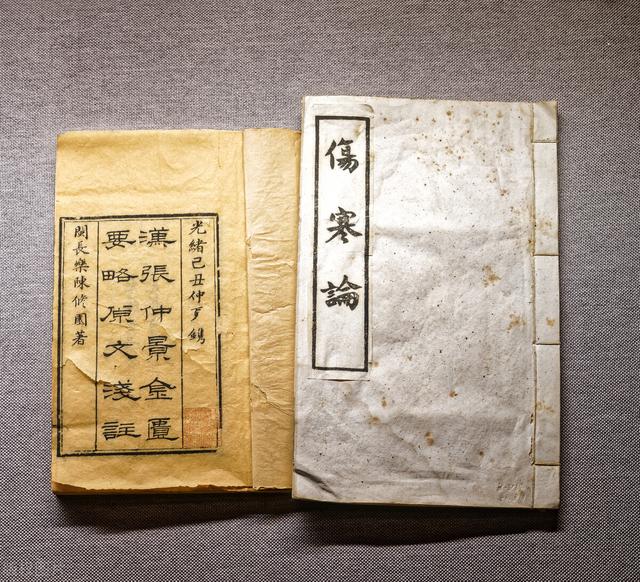 光緒己丑仲夏鐫
漢張仲景金匱
要略原文淺註
閩長樂陳修園著
傷寒論